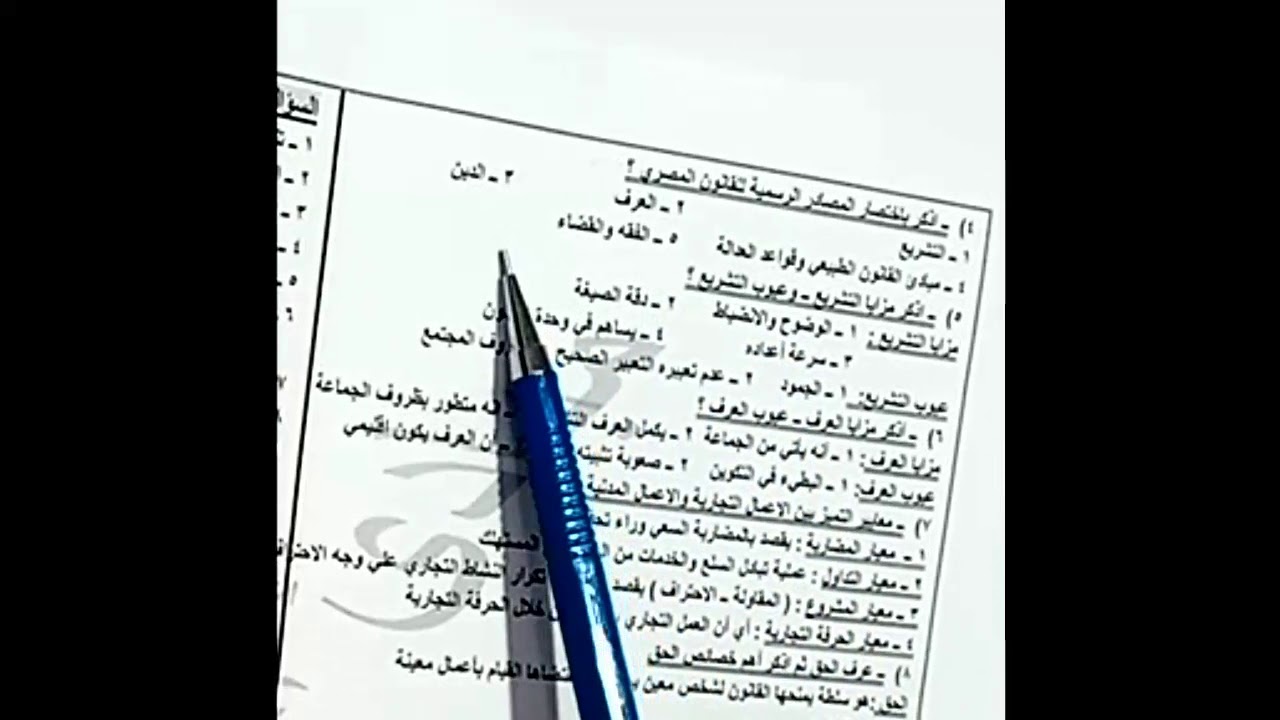 ٤) ـ اذكر باختصار المصادر الرسمية للقانون المصري ؟
١ ـ التشريع ٢ ـ العرف ٣ ـ الدين
٤ ـ مبادئ القانون الطبيعي وقواعد العدالة ٥ ـ الفقه والقضاء
٥) ـ اذكر مزايا التشريع ـ وعيوب التشريع ؟
مزايا التشريع : ١ ـ الوضوح والانضباط ٢ ـ دقة الصيغة
٣ ـ سرعة أعداده ٤ ـ يساهم في وحدة
عيوب التشريع: ١ ـ الجمود ٢ ـ عدم تعبيره التعبير الصحيح المجتمع
٦) ـ أذكر مزايا العرف ـ عيوب العرف ؟
مزايا العرف : ١ ـ أنه يأتي من الجماعة ٢ ـ يكمل العرف أنه متطور بظروف الجماعة
عيوب العرف: ١ ـ البطيء في التكوين ٢ ـ صعوبة تثبيته أن العرف يكون اقليمي
٧) ـ معايير التميز بين الاعمال التجارية والاعمال المدنية
١ ـ معيار المضاربة : يقصد بالمضاربة السعي وراء
٢ ـ معيار التداول : عملية تبادل السلع والخدمات من المستهلك
٣ ـ معيار المشروع : ( المقاولة ـ الاحتراف ) يقصد تكرار النشاط التجاري علي وجه
٤ ـ معيار الحرفة التجارية : أي أن العمل التجاري خلال الحرفة التجارية
٨) ـ عرف الحق ثم اذكر أهم خصائص الحق
الحق : هو سلطة يمنحها القانون لشخص معين القيام بأعمال معينة
١ ـ
٢ ـ
٣ ـ
٤ ـ
٥ ـ
٦
٧